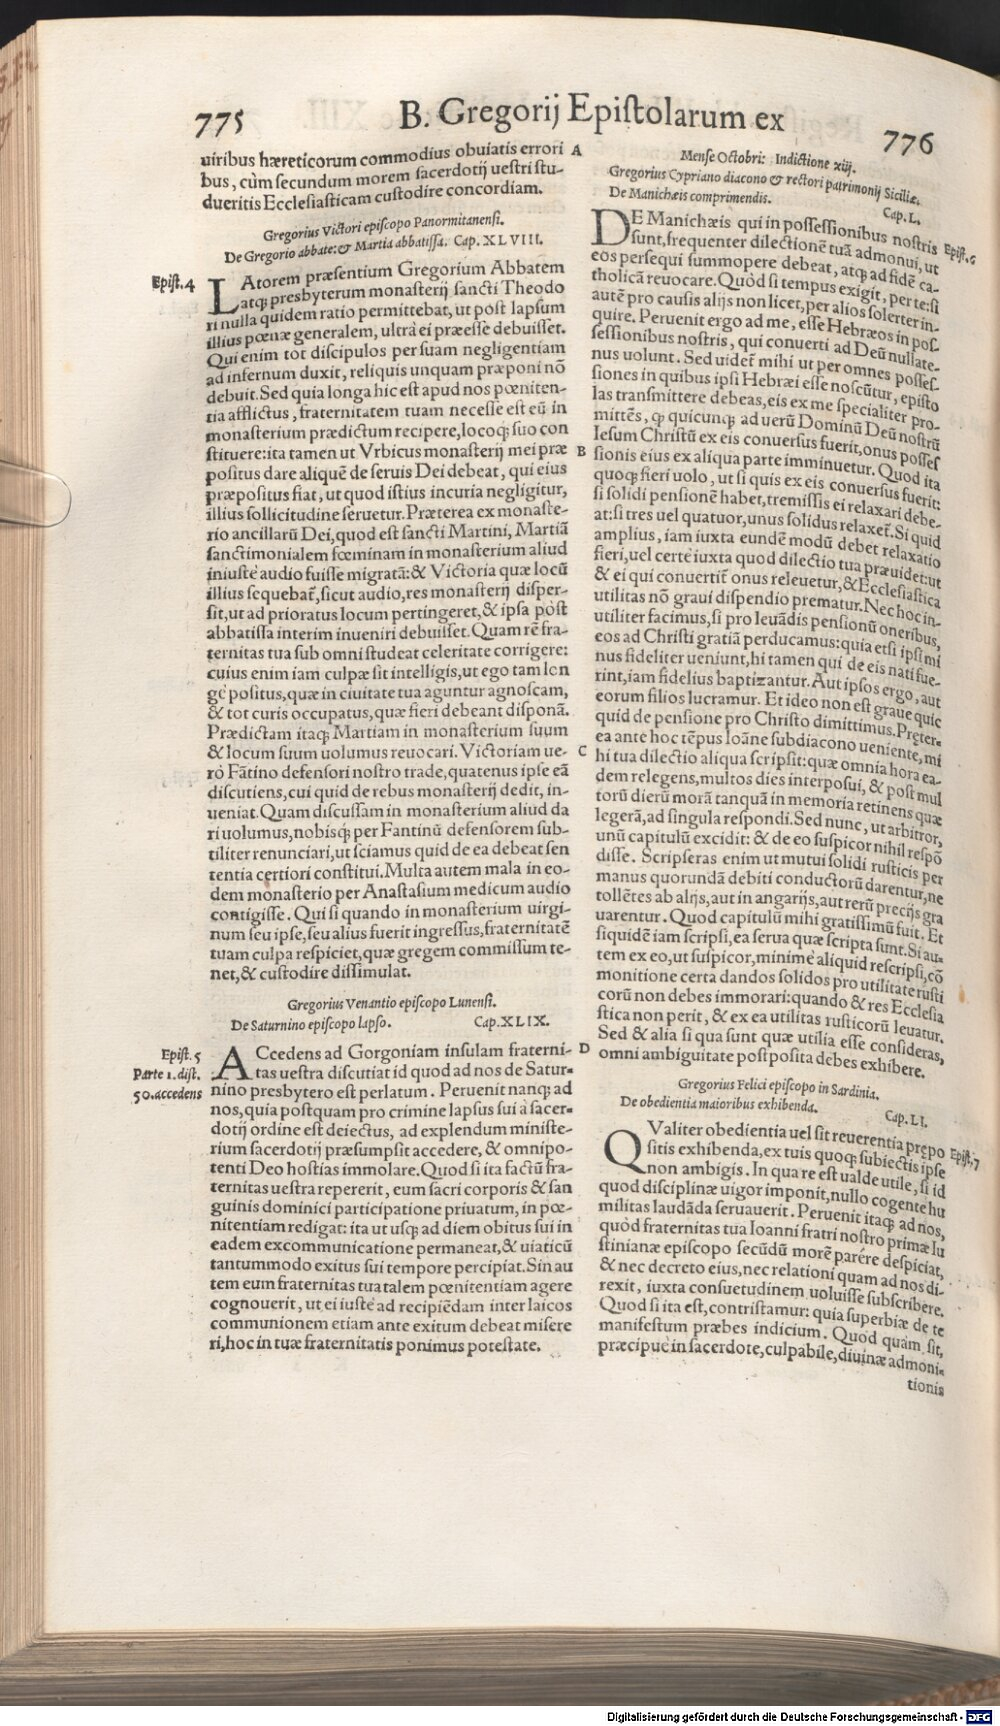 775
B. Gregorij Epistolarum ex
776
uiribus hæreticorum commodius obuiatis errori
bus, cùm secundum morem sacerdotij uestri stu-
dueritis Ecclesiasticam custodire concordiam.
Gregorius Victori episcopo Panormitanensi.
De Gregorio abbate: & Martia abbatissa. Cap. XLVIII.
Epist. 4
LAtorem præsentium Gregorium Abbatem
atq; presbyterum monasterij sancti Theodo
ri nulla quidem ratio permittebat, ut post lapsum
illius pœnæ generalem, ultrà ei præesse debuisset.
Qui enim tot discipulos per suam negligentiam
ad infernum duxit, reliquis unquam præponi nō
debuit. Sed quia longa hic est apud nos pœniten-
tia afflictus, fraternitatem tuam necesse est eū in
monasterium prædictum recipere, locoq; suo con
stituere: ita tamen ut Vrbicus monasterij mei præ
positus dare aliquē de seruis Dei debeat, qui eius
præpositus fiat, ut quod istius incuria negligitur,
illius sollicitudine seruetur. Præterea ex monaste-
rio ancillarū Dei, quod est sancti Martini, Martiā
sanctimonialem fœminam in monasterium aliud
iniustè audio fuisse migratā: & Victoria quæ locū
illius sequebat̄, sicut audio, res monasterij disper-
sit, ut ad prioratus locum pertingeret, & ipsa pòst
abbatissa interim inueniri debuisset. Quam rē fra-
ternitas tua sub omni studeat celeritate corrigere:
cuius enim iam culpæ sit intelligis, ut ego tam lon
gè positus, quæ in ciuitate tua aguntur agnoscam,
& tot curis occupatus, quæ fieri debeant disponā.
Prædictam itaq; Martiam in monasterium suum
& locum suum uolumus reuocari. Victoriam ue-
rò Fātino defensori nostro trade, quatenus ipse eā
discutiens, cui quid de rebus monasterij dedit, in-
ueniat. Quam discussam in monasterium aliud da
ri uolumus, nobisq; per Fantinū defensorem sub-
tiliter renunciari, ut sciamus quid de ea debeat sen
tentia certiori constitui. Multa autem mala in eo-
dem monasterio per Anastasium medicum audio
contigisse. Qui si quando in monasterium uirgi-
num seu ipse, seu alius fuerit ingressus, fraternitatē
tuam culpa respiciet, quæ gregem commissum te-
net, & custodire dissimulat.
Gregorius Venantio episcopo Lunensi.
De Saturnino episcopo lapso. Cap. XLIX.
Epist. 5
Parte 1. dist.
50. accedens
ACcedens ad Gorgoniam insulam fraterni-
tas uestra discutiat id quod ad nos de Satur-
nino presbytero est perlatum. Peruenit nanq; ad
nos, quia postquam pro crimine lapsus sui à sacer-
dotij ordine est deiectus, ad explendum ministe-
rium sacerdotij præsumpsit accedere, & omnipo-
tenti Deo hostias immolare. Quod si ita factū fra-
ternitas uestra repererit, eum sacri corporis & san
guinis dominici participatione priuatum, in pœ-
nitentiam redigat: ita ut usq; ad diem obitus sui in
eadem excommunicatione permaneat, & uiaticū
tantummodo exitus sui tempore percipiat. Sin au
tem eum fraternitas tua talem pœnitentiam agere
cognouerit, ut ei iustè ad recipiēdam inter laicos
communionem etiam ante exitum debeat misere
ri, hoc in tuæ fraternitatis ponimus potestate.
A
B
C
D
Mense Octobri: Indictione xiij.
Gregorius Cypriano diacono & rectori patrimonij Siciliæ.
De Manichæis comprimendis. Cap. L.
Epist. 6
DE Manichæis qui in possessionibus nostris
sunt, frequenter dilectionē tuā admonui, ut
eos persequi summopere debeat, atq; ad fidē ca-
tholicā reuocare. Quòd si tempus exigit, per te: si
autē pro causis alijs non licet, per alios solerter in-
quire. Peruenit ergo ad me, esse Hebræos in pos-
sessionibus nostris, qui conuerti ad Deū nullate-
nus uolunt. Sed uidet̄ mihi ut per omnes posses-
siones in quibus ipsi Hebræi esse noscūtur, episto
las transmittere debeas, eis ex me specialiter pro-
mittēs, q̃ quicunq; ad uerū Dominū Deū nostrū
Iesum Christū ex eis conuersus fuerit, onus posses
sionis eius ex aliqua parte imminuetur. Quod ita
quoq; fieri uolo, ut si quis ex eis conuersus fuerit:
si solidi pensionē habet, tremissis ei relaxari debe-
at: si tres uel quatuor, unus solidus relaxet̄. Si quid
amplius, iam iuxta eundē modū debet relaxatio
fieri, uel certè iuxta quod dilectio tua præuidet: ut
& ei qui conuertit̄ onus releuetur, & Ecclesiastica
utilitas nō graui dispendio prematur. Nec hoc in-
utiliter facimus, si pro leuādis pensionū oneribus,
eos ad Christi gratiā perducamus: quia etsi ipsi mi
nus fideliter ueniunt, hi tamen qui de eis nati fue-
rint, iam fidelius baptizantur. Aut ipsos ergo, aut
eorum filios lucramur. Et ideo non est graue quic
quid de pensione pro Christo dimittimus. Præter-
ea ante hoc tēpus Ioāne subdiacono ueniente, mi
hi tua dilectio aliqua scripsit: quæ omnia hora ea-
dem relegens, multos dies interposui, & post mul
torū dierū morā tanquā in memoria retinens quæ
legerā, ad singula respondi. Sed nunc, ut arbitror,
unū capitulū excidit: & de eo suspicor nihil respō
disse. Scripseras enim ut mutui solidi rusticis per
manus quorundā debiti conductorū darentur, ne
tollētes ab alijs, aut in angarijs, aut rerū precijs gra
uarentur. Quod capitulū mihi gratissimū fuit. Et
siquidē iam scripsi, ea serua quæ scripta sunt. Si au-
tem ex eo, ut suspicor, minimè aliquid rescripsi, cō
monitione certa dandos solidos pro utilitate rusti
corū non debes immorari: quando & res Ecclesia
stica non perit, & ex ea utilitas rusticorū leuatur.
Sed & alia si qua sunt quæ utilia esse consideras,
omni ambiguitate postposita debes exhibere.
Gregorius Felici episcopo in Sardinia.
De obedientia maioribus exhibenda. Cap. LI.
Epist. 7
QValiter obedientia uel sit reuerentia præpo
sitis exhibenda, ex tuis quoq; subiectis ipse
non ambigis. In qua re est ualde utile, si id
quod disciplinæ uigor imponit, nullo cogente hu
militas laudāda seruauerit. Peruenit itaq; ad nos,
quòd fraternitas tua Ioanni fratri nostro primæ Iu
stinianæ episcopo secūdū morē parére despiciat,
& nec decreto eius, nec relationi quam ad nos di-
rexit, iuxta consuetudinem uoluisse subscribere.
Quod si ita est, contristamur: quia superbiæ de te
manifestum præbes indicium. Quod quàm sit,
præcipuè in sacerdote, culpabile, diuinæ admoni-
tionis
Digitalisierung gefördert durch die Deutsche Forschungsgemeinschaft - DFG